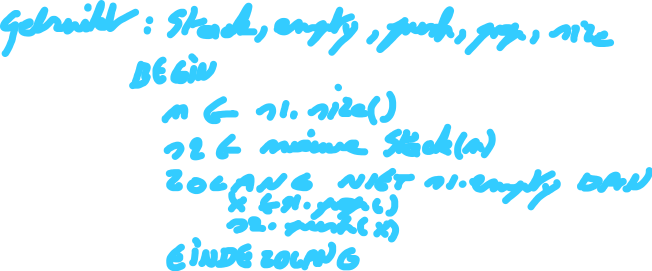 gebruikt: Stack, empty, push, pop, size
BEGIN
n ← s1.size()
s2 ← nieuwe Stack(n)
ZOLANG NIET s1.empty DAN
x ← s1.pop()
s2.push(x)
EINDE ZOLANG